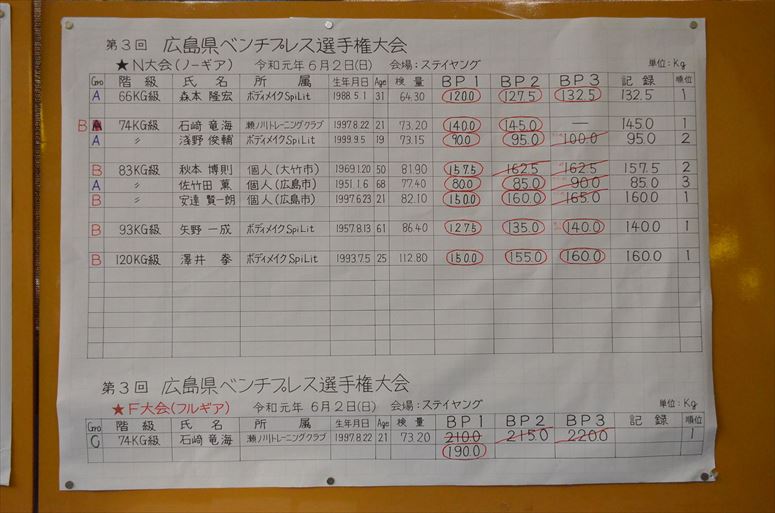 第3回 広島県ベンチプレス選手権大会
★N大会(ノーギア) 令和元年6月2日(日) 会場:ステイヤング 単位:Kg
Gro 階級 氏名 所属 生年月日 Age 検量 BP1 BP2 BP3 記録 順位
A 66KG級 森本 隆宏 ボディメイクSpiLit 1988.5.1 31 64.30 120.0 127.5 132.5 132.5 1
B 74KG級 石崎 竜海 瀬ノ川トレーニングクラブ 1997.8.22 21 73.20 140.0 145.0 — 145.0 1
A 〃 浅野 俊輔 ボディメイクSpiLit 1999.9.5 19 73.15 90.0 95.0 100.0 95.0 2
B 83KG級 秋本 博則 個人(大竹市) 1969.1.20 50 81.90 157.5 162.5 162.5 157.5 2
A 〃 佐竹田 薫 個人(広島市) 1951.1.6 68 77.40 80.0 85.0 90.0 85.0 3
B 〃 安達 賢一朗 個人(広島市) 1997.6.23 21 82.10 150.0 160.0 165.0 160.0 1
B 93KG級 矢野 一成 ボディメイクSpiLit 1957.8.13 61 86.40 127.5 135.0 140.0 140.0 1
B 120KG級 澤井 拳 ボディメイクSpiLit 1993.7.5 25 112.80 150.0 155.0 160.0 160.0 1
第3回 広島県ベンチプレス選手権大会
★F大会(フルギア) 令和元年6月2日(日) 会場:ステイヤング 単位:Kg
Gro 階級 氏名 所属 生年月日 Age 検量 BP1 BP2 BP3 記録 順位
C 74KG級 石崎 竜海 瀬ノ川トレーニングクラブ 1997.8.22 21 73.20 210.0 215.0 220.0 1
190.0